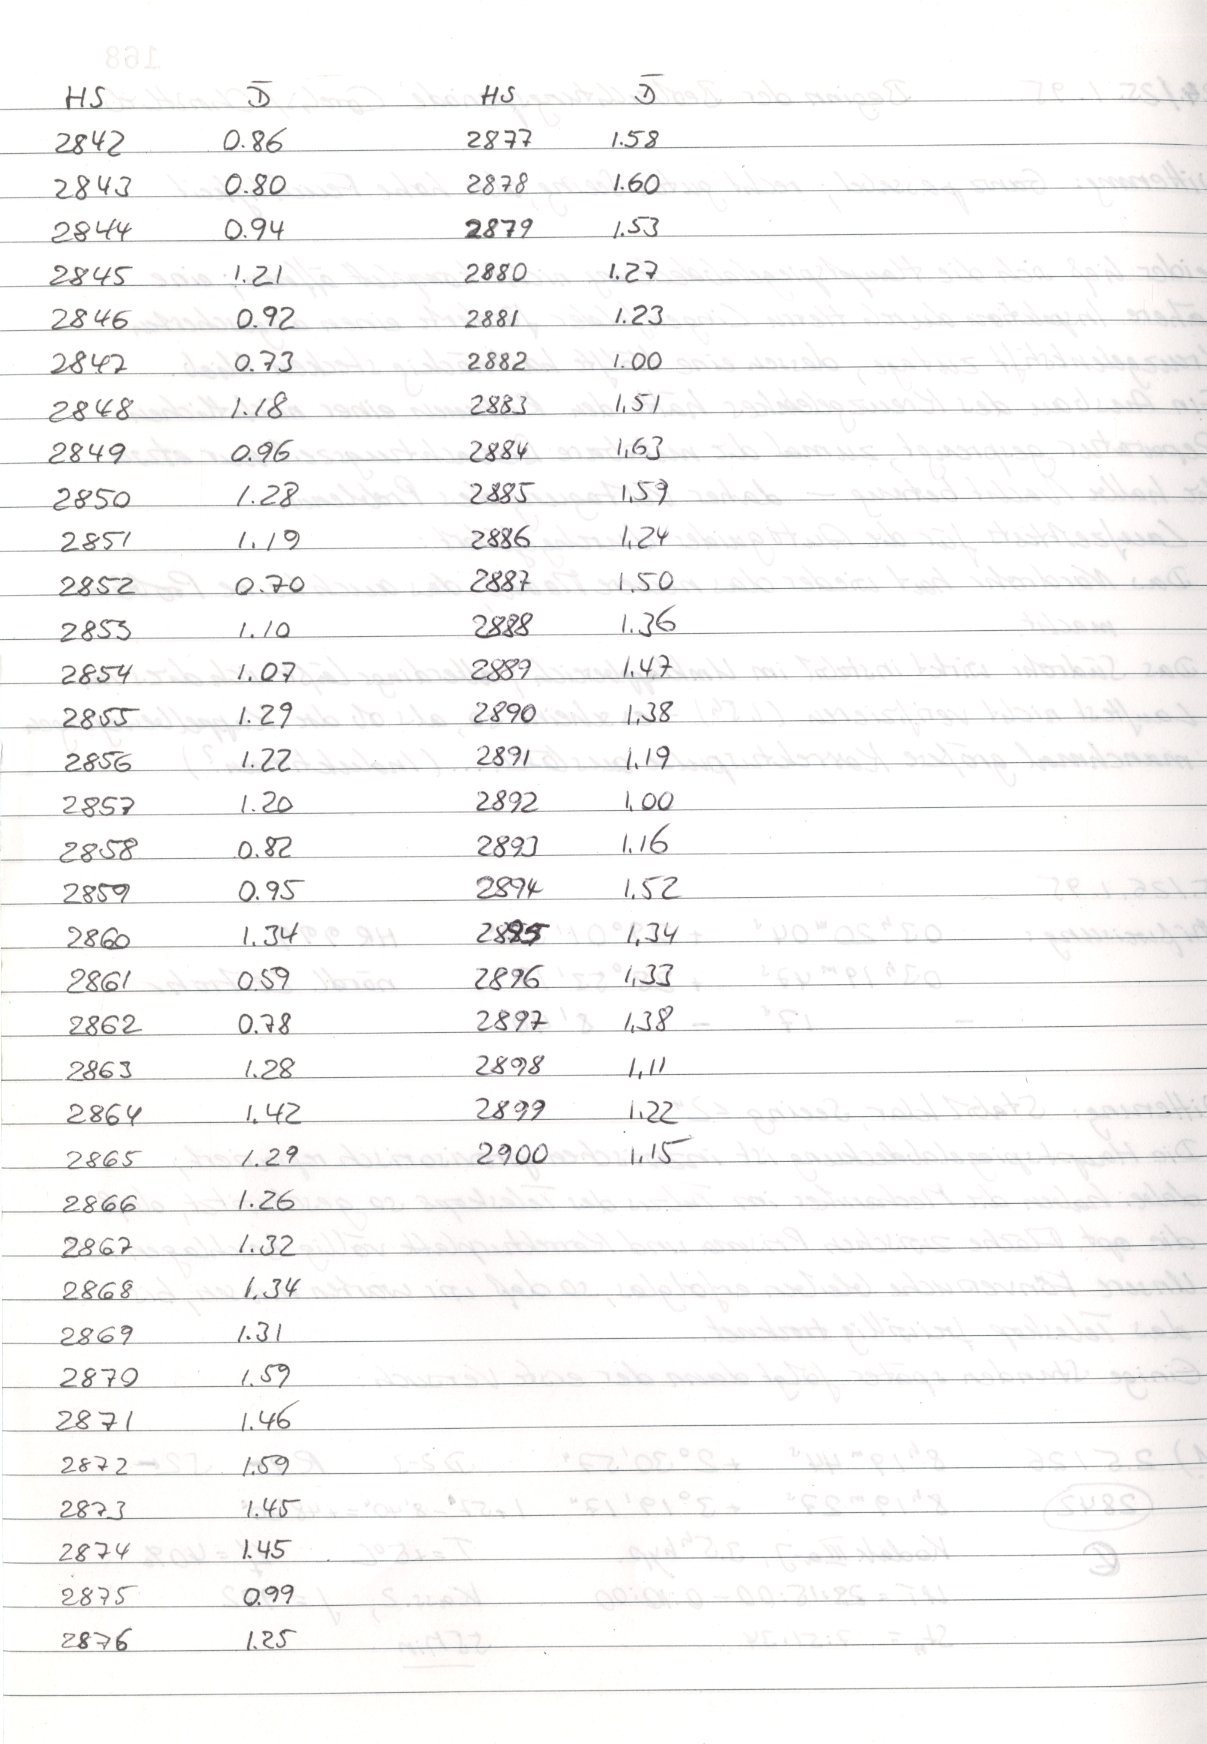 HS D̅ HS D̅
2842 0.86 2877 1.58
2843 0.80 2878 1.60
2844 0.94 2879 1.53
2845 1.21 2880 1.27
2846 0.92 2881 1.23
2847 0.73 2882 1.00
2848 1.18 2883 1,51
2849 0.96 2884 1,63
2850 1.28 2885 1,59
2851 1.19 2886 1,24
2852 0.70 2887 1,50
2853 1.10 2888 1.36
2854 1.07 2889 1.47
2855 1.29 2890 1,38
2856 1.22 2891 1,19
2857 1.20 2892 1,00
2858 0.82 2893 1,16
2859 0.95 2894 1,52
2860 1.34 2895 1,34
2861 0.59 2896 1,33
2862 0.78 2897 1,38
2863 1.28 2898 1,11
2864 1.42 2899 1.22
2865 1.29 2900 1,15
2866 1.26
2867 1.32
2868 1.34
2869 1.31
2870 1.59
2871 1.46
2872 1.59
2873 1.45
2874 1.45
2875 0.99
2876 1.25